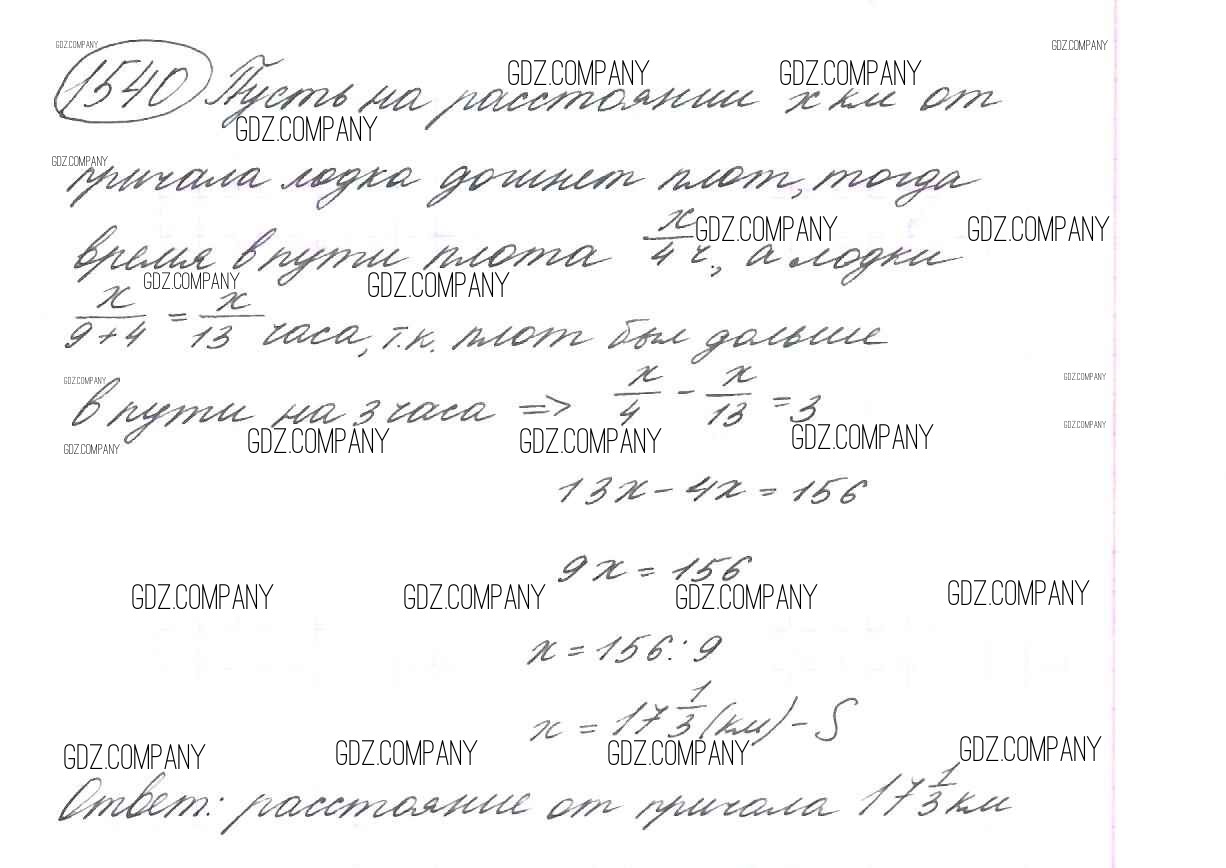 GDZ.COMPANY GDZ.COMPANY
1540 Пусть на расстоянии x км от
GDZ.COMPANY GDZ.COMPANY
GDZ.COMPANY
GDZ.COMPANY
причала лодка догинет плот, тогда
время в пути плота x/4 ч, а лодки
GDZ.COMPANY GDZ.COMPANY
GDZ.COMPANY GDZ.COMPANY
x/9+4 = x/13 часа, т.к. плот был дольше
GDZ.COMPANY GDZ.COMPANY
в пути на 3 часа => x/4 - x/13 = 3
GDZ.COMPANY
GDZ.COMPANY GDZ.COMPANY GDZ.COMPANY GDZ.COMPANY
13x - 4x = 156
9x = 156
GDZ.COMPANY GDZ.COMPANY GDZ.COMPANY GDZ.COMPANY
x = 156 : 9
x = 17 1/3 (км) - S
GDZ.COMPANY GDZ.COMPANY GDZ.COMPANY GDZ.COMPANY
Ответ: расстояние от причала 17 1/3 км